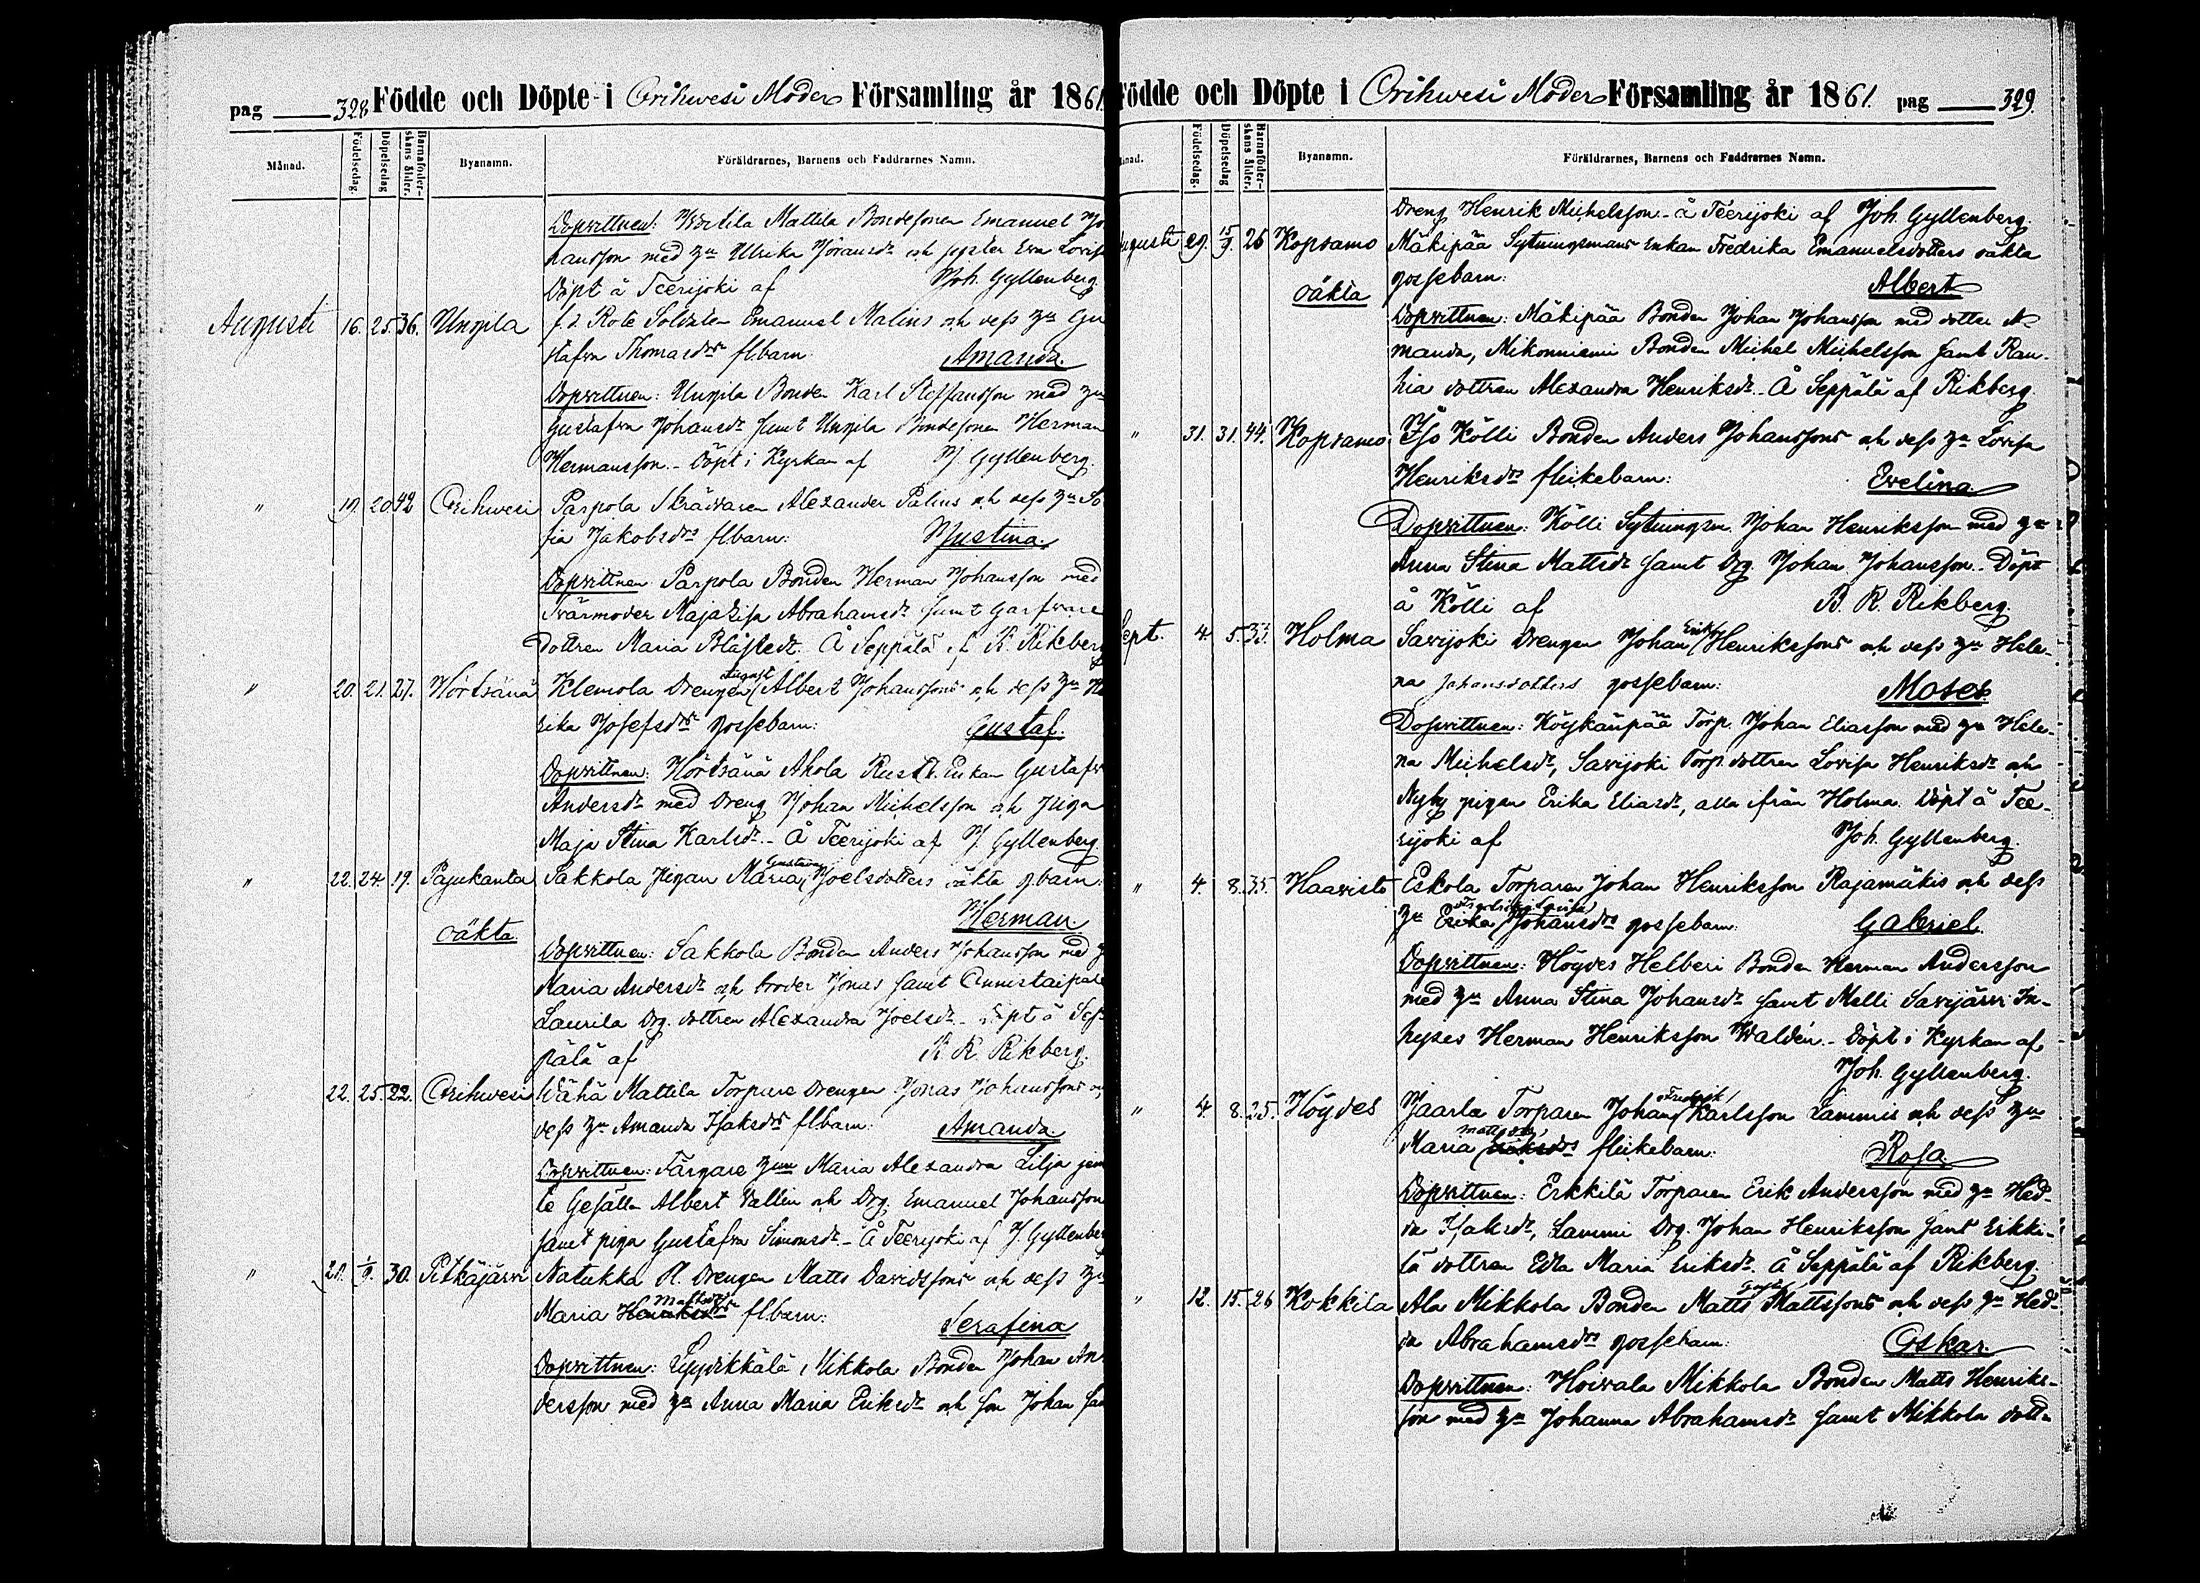 pag 328 Födde och Döpte i Orihwesi Moder Församling år 1861
Månad. Födelsedag. Döpelsedag Barnaföder-skans ålder. Byanamn. Föräldrarnes, Barnens och Faddrarnes Namn.
Dopvittnen: Mattila Bondesonen Emanuel Jo
hansson med hu Ulrika Göransdr och syster Eva Lovisa
Döpt å Teerijoki af Joh. Gyllenberg
Augusti 16. 25. 36. Unnila f.d. Rote Soldaten Emanuel Malins och dess hu Gu
stafva Thomasdrs flbarn: Amanda.
Dopvittnen: Unnila Bonden Karl Steffansson med hu
Gustafva Johansdr samt Unnila Bondesonen Herman
Hermansson. - Döpt i Kyrkan af J Gyllenberg.
" 19. 20 42 Orihwesi Parpola Skräddaren Alexander Palins och dess hu So
fia Jakobsdrs flbarn: Justina.
Dopvittnen: Parpola Bonden Herman Johansson med
Svärmoder Maja Lisa Abrahamsdr samt Garfvare
dottren Maria Blåstedt. Å Seppälä af K. Rikberg
" 20. 21. 27. Hörtsänä Klemola Drengen August Albert Johanssons och dess hu He
rika Josefsdrs gossebarn: Gustaf.
Dopvittnen: Hörtsänä Ahola Rusth. Enkan Gustafva
Andersdr med Dreng Johan Michelsson och pigan
Maja Stina Karlsdr. - Å Teerijoki af J Gyllenberg.
" 22. 24. 19. Pajukanta Sakkola Pigan Maria Gustava Joelsdotters oäkta gbarn:
oäkta Herman.
Dopvittnen: Sakkola Bonden Anders Johansson med h
Maria Andersdr och broder Jonas samt Onnistaipale
Laurila Drg. dottren Alexandra Joelsdr - Döpt å Sep-
pälä af K R. Rikberg.
22. 25. 22. Orihwesi Wähä Mattila Torpare Drengen Jonas Johanssons och
dess hu Amanda Isaksdrs flbarn: Amanda.
Dopvittnen: Färgare hun Maria Alexandra Lilja jem
te Gesälln Albert Vallin och Drg: Emanuel Johansson
samt piga Gustafva Simonsdr. - Å Teerijoki af J. Gyllenberg
" 28. 1/9. 30. Pitkäjärvi Natukka Pl. Drengen Matts Davidssons och dess hu
Maria Henriksdrs Mattsdr flbarn: Serafina
Dopvittnen: Mikkola Bonden Johan An-
dersson med hu Anna Maria Eriksdr och son Johan sam
Födde och Döpte i Orihwesi Moder Församling år 1861. pag 329.
nad. Födelsedag. Döpelsedag Barnaföder-skans ålder. Byanamn. Föräldrarnes, Barnens och Faddrarnes Namn.
Dreng Henrik Michelsson - å Teerijoki af Joh. Gyllenberg.
ugusti 29. 15/9. 26 Kopsamo Mäkipää Sytningsmans Enkan Fredrika Emanuelsdotters oäkta
oäkta gossebarn: Albert
Dopvittnen: Mäkipää Bonden Johan Johansson med dotter A-
manda, Mikonniemi Bonden Michel Michelsson samt Rau-
hia dottren Alexandra Henriksdr. - Å Seppälä af Rikberg.
" 31. 31. 44. Kopsamo Iso Kölli Bonden Anders Johanssons och dess hu Lovisa
Henriksdrs flickebarn: Evelina
Dopvittnen: Kölli Sytningsm. Johan Henriksson med hu
Anna Stina Mattsdr samt Drg. Johan Johansson - Döpt
å Kölli af B. R. Rikberg.
Sept. 4. 5. 33. Holma Savijoki Drengen Johan Erik Henrikssons och dess hu Hele-
na Johansdotters gossebarn: Moses
Dopvittnen: Köykänpää Torp. Johan Eliasson med hu Hele-
na Michelsdr, Savijoki Torp dottren Lovisa Henriksdr och
Nyby pigan Erika Eliasdr, alla ifrån Holma. Döpt å Tee-
rijoki af Joh. Gyllenberg.
" 4. 8. 35. Haavisto Eskola Torparen Johan Henriksson Rajamäkis och dess
hu Erika Fredrika Lovisa Johansdrs gossebarn: Gabriel
Dopvittnen: Höydes Helberi Bonden Herman Andersson
med hu Anna Stina Johansdr samt Melli Savijärvi In-
hyses Herman Henriksson Waldén. - Döpt i Kyrkan af
Joh. Gyllenberg.
" 4. 8. 25. Höydes Jaarla Torparen Johan Fredrik Karlsson Lammis och dess hu
Maria Mattsdr flickebarn: Rosa
Dopvittnen: Erkkilä Torparen Erik Andersson med hu Hed-
da Isaksdr, Lammi Drg. Johan Henriksson samt Erkki-
lä dottren Edla Maria Eriksdr. Å Seppälä af Rikberg.
" 12. 15. 26 Kokkila Ala Mikkola Bonden Matts Gustaf Mattssons och dess hu Hed-
da Abrahamsdrs gossebarn: Oskar.
Dopvittnen: Hoivala Mikkola Bonden Matts Henriks-
son med hu Johanna Abrahamsdr samt Mikkola dottn